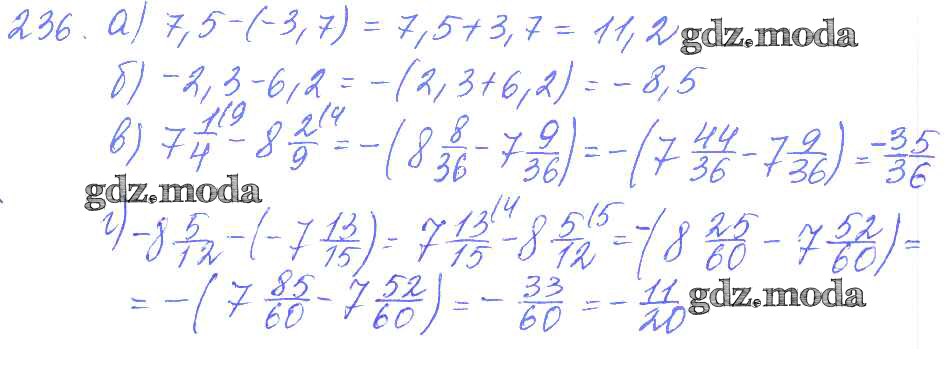 236. а) 7,5-(-3,7) = 7,5+3,7 = 11,2 gdz.moda
б) -2,3-6,2 = -(2,3+6,2) = -8,5
в) 7 1/4 (9 - 8 2/9 (4 = -(8 8/36 - 7 9/36) = -(7 44/36 - 7 9/36) = -35/36
gdz.moda
г) -8 5/12 - (-7 13/15) = 7 13/15 (4 - 8 5/12 (5 = -(8 25/60 - 7 52/60) =
= -(7 85/60 - 7 52/60) = - 33/60 = - 11/20 gdz.moda